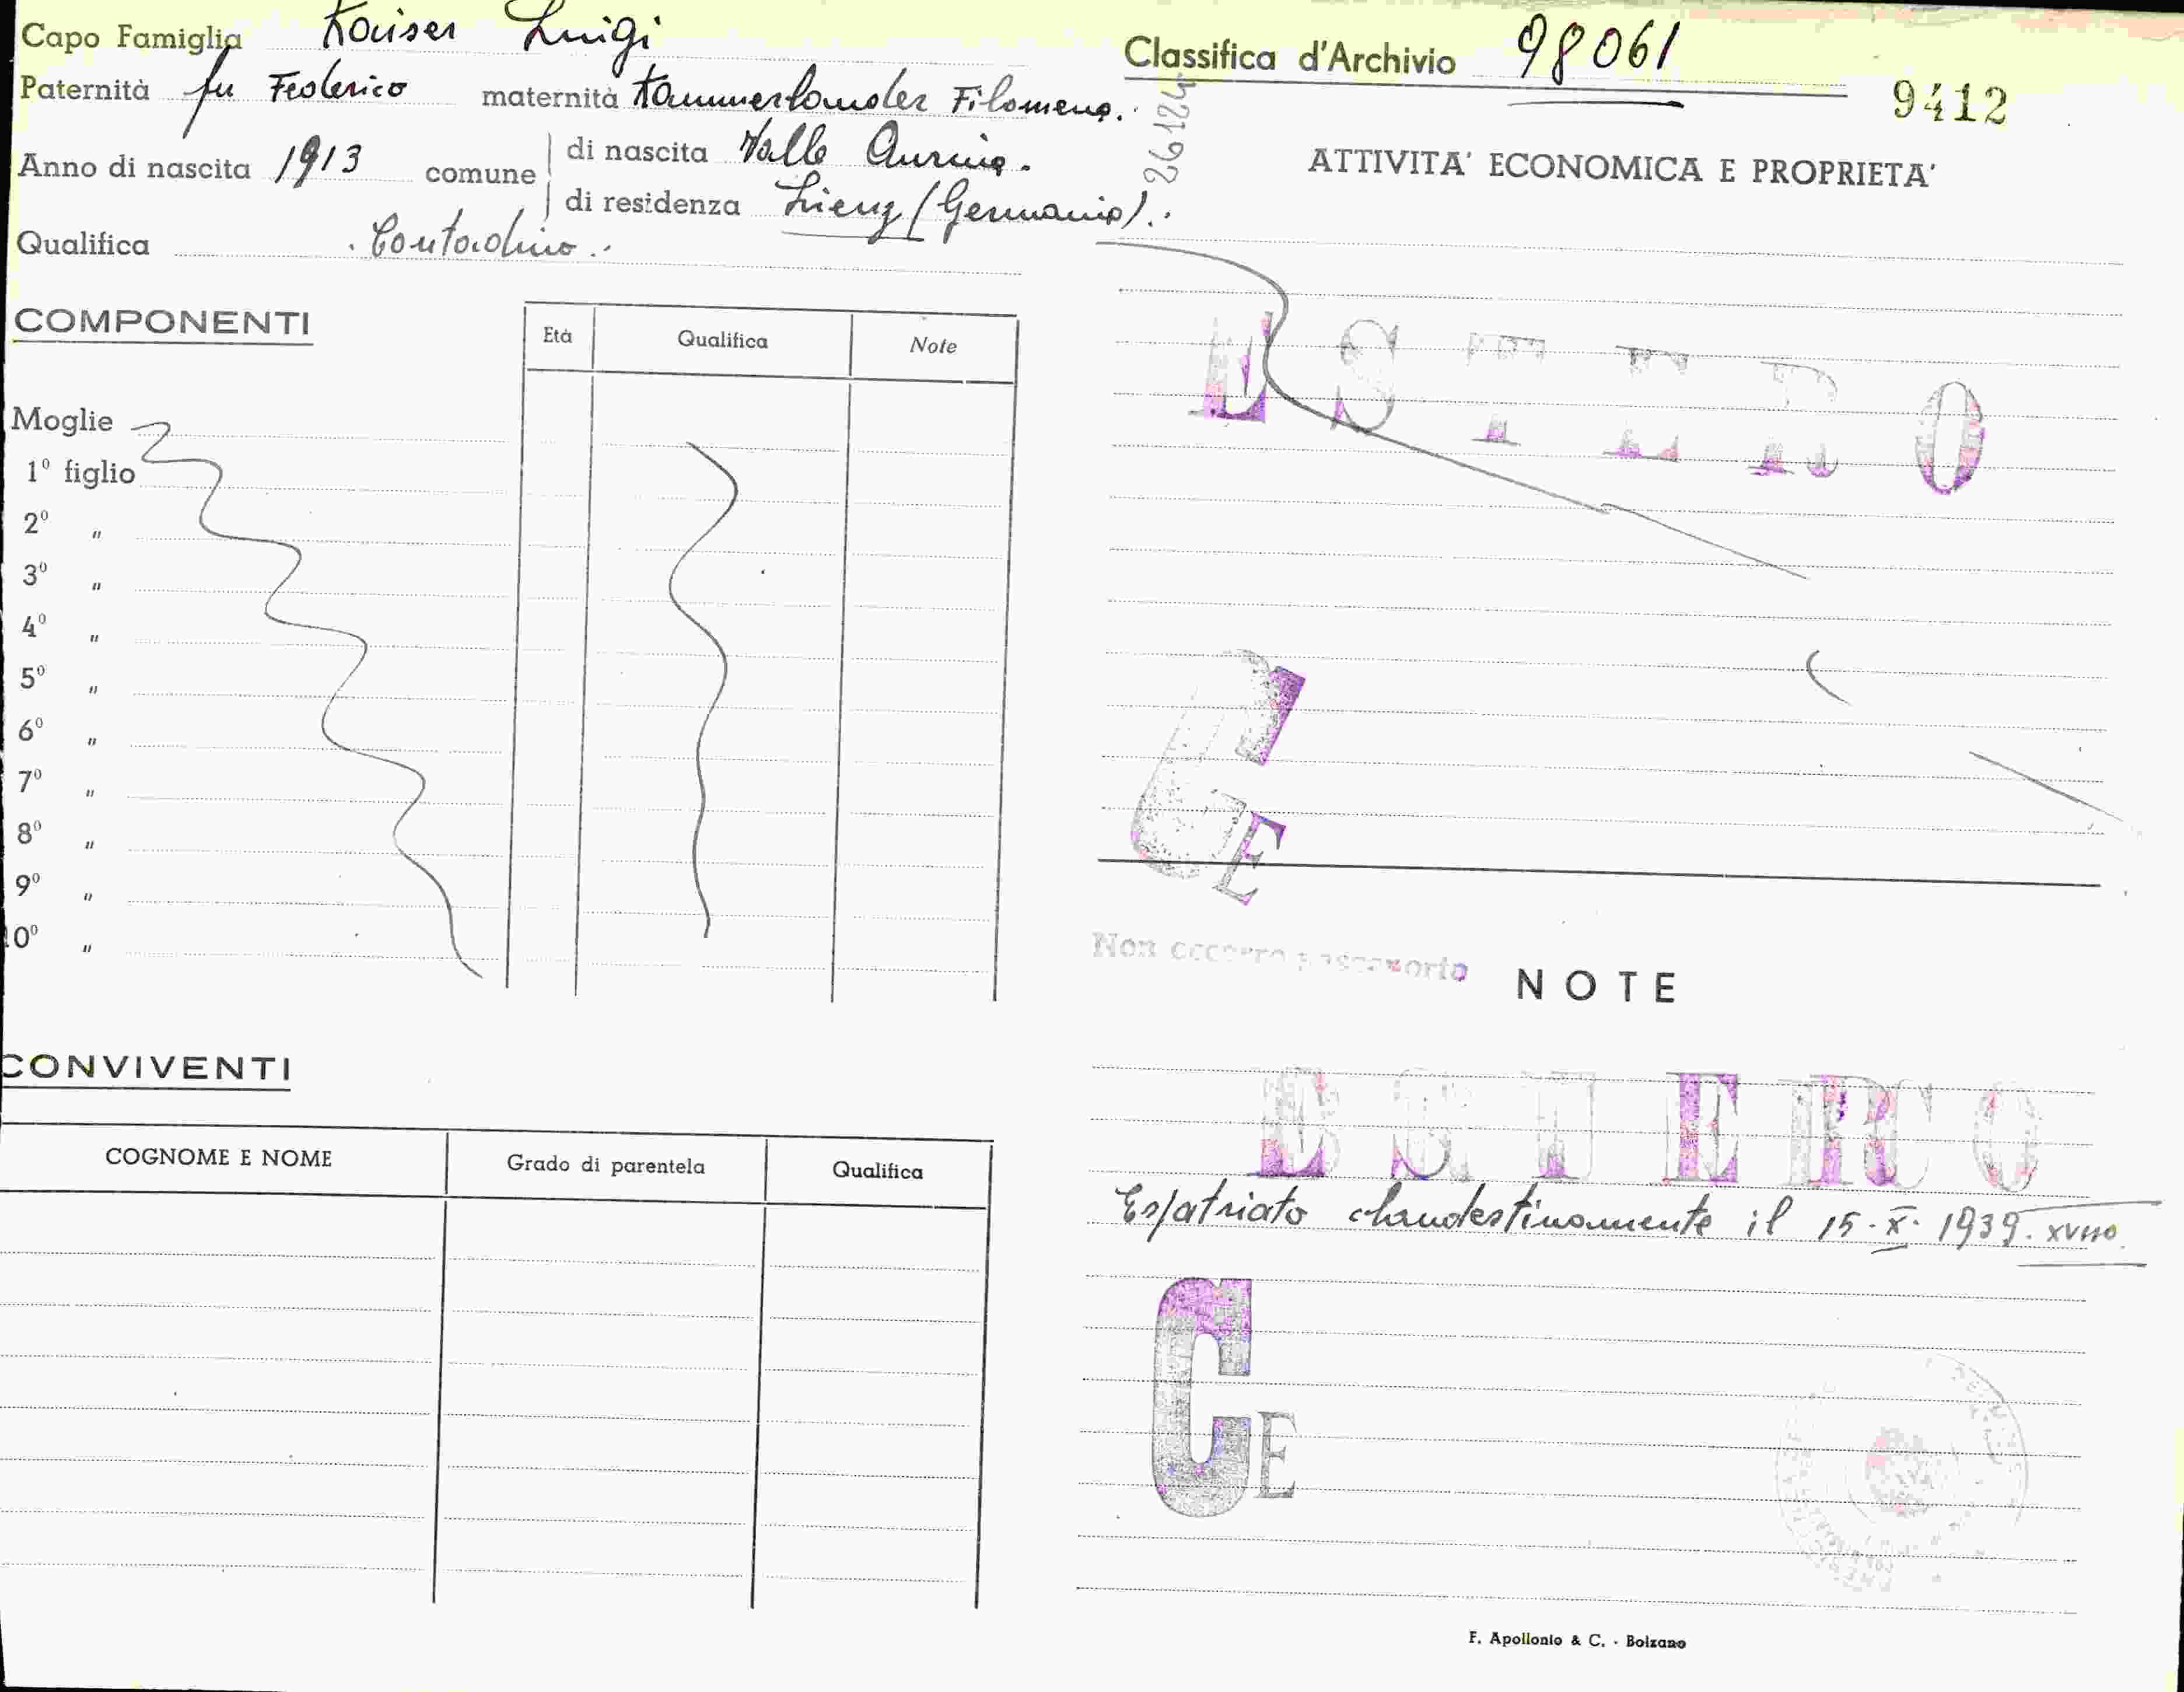 Capo Famiglia Kaiser Luigi
Paternità fu Federico maternità Kammerlander Filomena.
Anno di nascita 1913 comune di nascita Valle Aurina.
di residenza Lienz (Germania).
Qualifica Contadino.
COMPONENTI
Età Qualifica Note
Moglie
1º figlio
2º "
3º "
4º "
5º "
6º "
7º "
8º "
9º "
10º "
CONVIVENTI
COGNOME E NOME Grado di parentela Qualifica
Classifica d'Archivio 98061
9412
26124
ATTIVITA' ECONOMICA E PROPRIETA'
ESTERO
CE
Non occorre passaporto
NOTE
ESTERO
Espatriato clandestinamente il 15-X-1939. XVIIº
CE
F. Apollonio & C. - Bolzano